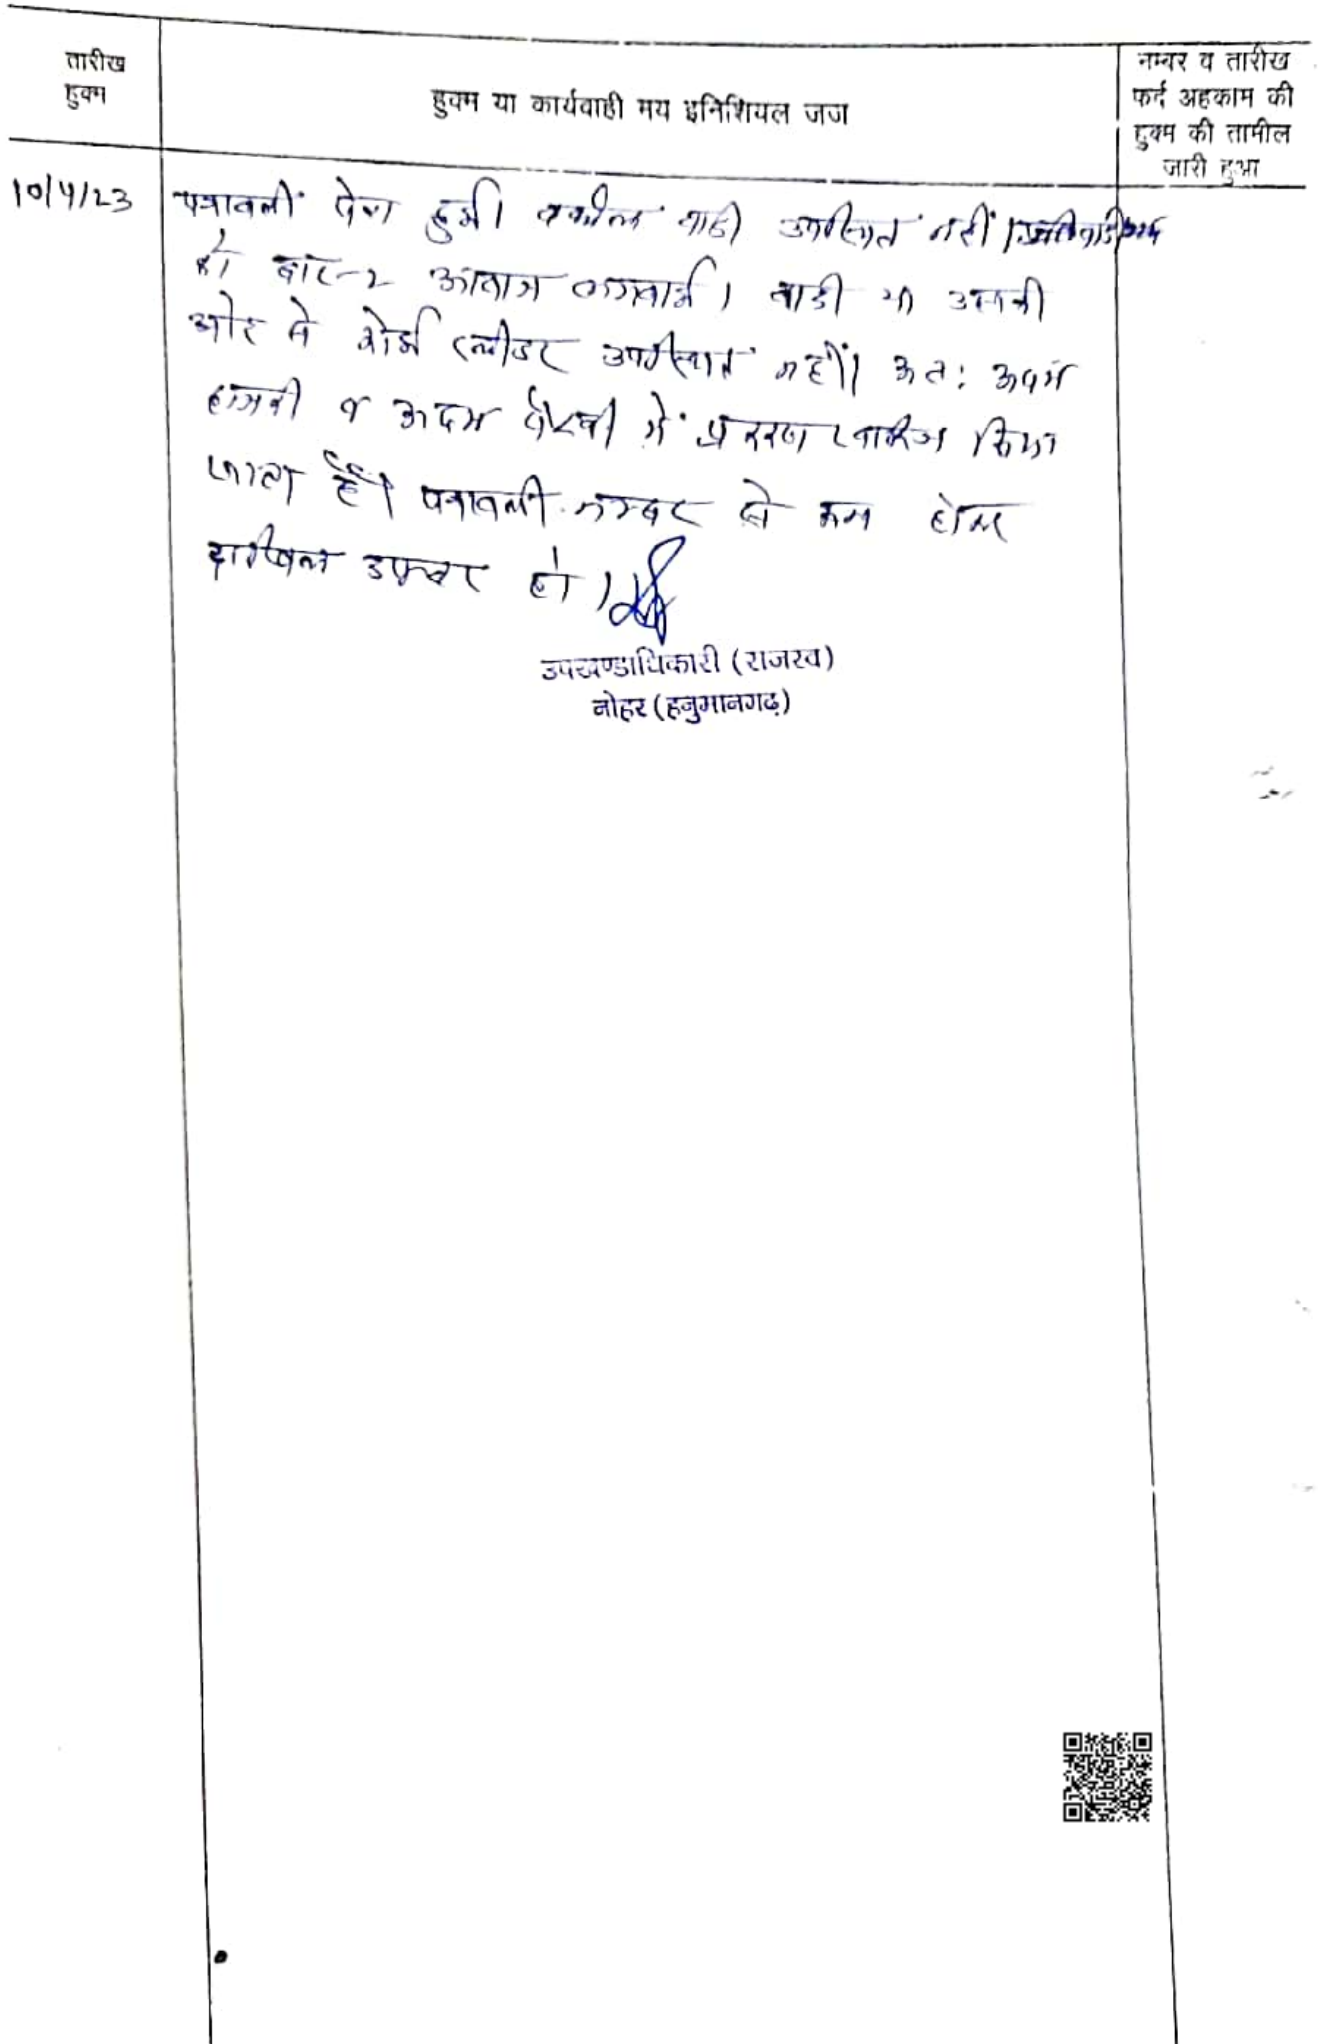 तारीख
हुक्म
हुक्म या कार्यवाही मय इनिशियल जज
नम्बर व तारीख
फर्द अहकाम की
हुक्म की तामील
जारी हुआ
10/4/23
पत्रावली पेश हुई। वकील वादी उपस्थित नहीं।
को बार-2 आवाज लगवाई। वादी या उसकी
ओर से कोई प्लीडर उपस्थित नहीं। अतः अदम
हाजरी व अदम पैरवी में प्रकरण खारिज किया
जाता है। पत्रावली नम्बर से कम होकर
दाखिल दफ्तर हो।
उपखण्डाधिकारी (राजस्व)
नोहर (हनुमानगढ़)